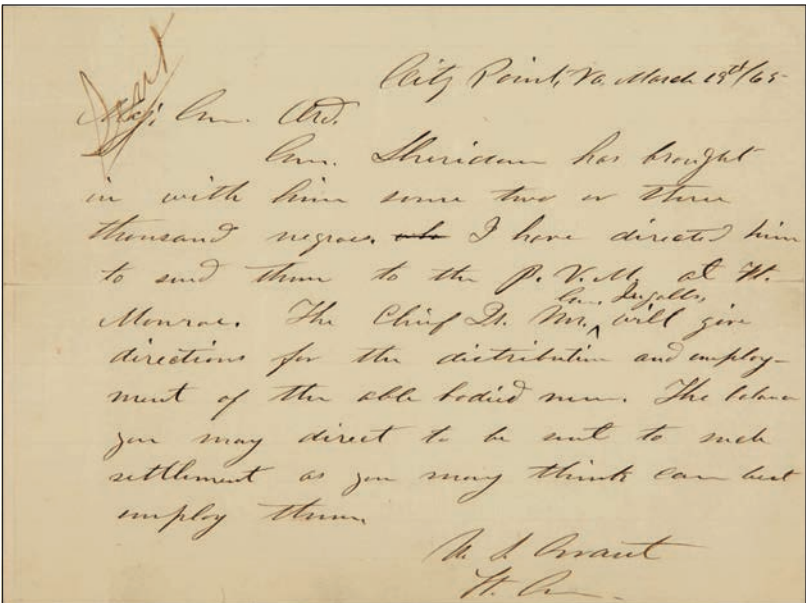 City Point, Va. March 19th/65
Maj. Gen. Ord.
Gen. Sheridan has brought
in with him some two or three
thousand negroes. I have directed him
to send them to the P. V. M. at Ft.
Gen. Ingalls,
Monroe. The Chief Qt. Mr. ^ will give
directions for the distribution and employ-
ment of the able bodied men. The balance
you may direct to be sent to such
settlement as you may think can best
employ them.
U. S. Grant
Lt. Gen.